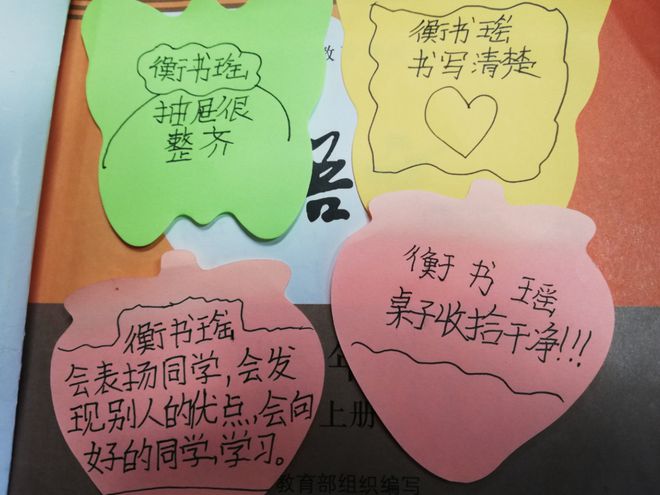 衡书瑶
抽屉很
整齐
衡书瑶
书写清楚
衡书瑶
桌子收拾干净!!!
衡书瑶
会表扬同学,会发
现别人的优点,会向
好的同学,学习。
上册
教育部组织编写